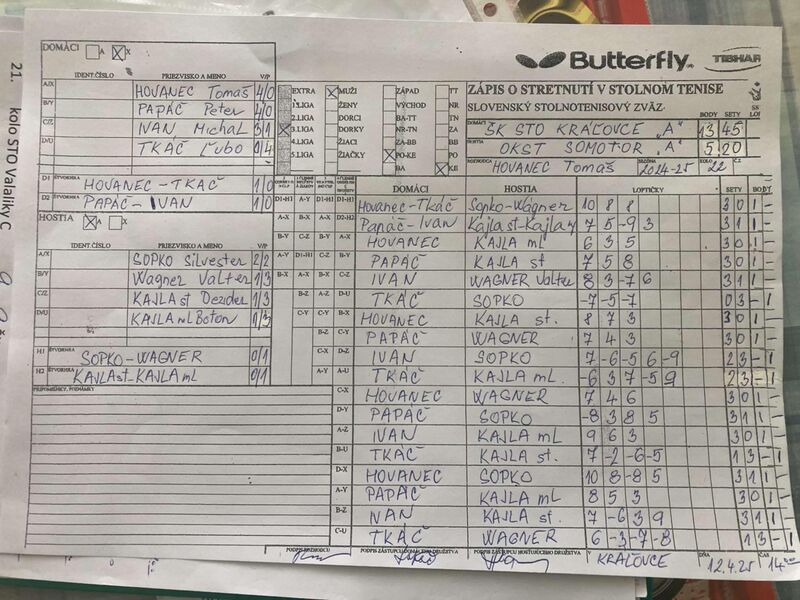 21. kolo STO Valaliky C
DOMÁCI A X
IDENT.ČÍSLO PRIEZVISKO A MENO V/P
A/X HOVANEC Tomaš 4/0
B/Y PAPÁČ Peter 4/0
C/Z IVAN Michal 3/1
D/U TKÁČ Ľubo 0/4
D1 ŠTVORHRA HOVANEC-TKÁČ 1/0
D2 ŠTVORHRA PAPÁČ-IVAN 1/0
HOSTIA A X
IDENT.ČÍSLO PRIEZVISKO A MENO V/P
A/X SOPKO Silvester 2/2
B/Y Wagner Valter 1/3
C/Z KAJLA st Dezider 1/3
D/U KAJLA ml Boton 1/3
H1 ŠTVORHRA SOPKO-WAGNER 0/1
H2 ŠTVORHRA KAJLA st-KAJLA ml 0/1
PRIPOMIENKY, POZNÁMKY
EXTRA MUŽI ZÁPAD TT
1.LIGA ŽENY VÝCHOD NR
2.LIGA DORCI BA-TT TN
3.LIGA DORKY NR-TN ZA
4.LIGA ŽIACI ZA-BB BB
5.LIGA ŽIAČKY PO-KE PO
BA KE
Butterfly
TIBHAR
ZÁPIS O STRETNUTÍ V STOLNOM TENISE
SLOVENSKÝ STOLNOTENISOVÝ ZVÄZ
BODY SETY
DOMÁCI ŠK STO KRÁĽOVCE „A" 13 45
HOSTIA OKST SOMOTOR „A" 5 20
ROZHODCA HOVANEC Tomaš SEZÓNA 2024-25 KOLO 22
DOMÁCI HOSTIA LOPTIČKY SETY BODY
D1-H1 A-Y D1-H1 Hovanec-Tkáč Sopko-Wagner 10 8 8 3 0 1 -
A-X B-X D2-H2 Papáč-Ivan Kajla st-Kajla ml 7 5 -9 3 3 1 1 -
B-Y C-Z A-X HOVANEC KAJLA ml 6 3 5 3 0 1 -
A-Y D1-H1 B-Y PAPÁČ KAJLA st 7 5 8 3 0 1 -
B-X A-X C-Z IVAN WAGNER Valter 8 3 -7 6 3 1 1 -
B-Z A-Z D-U TKÁČ SOPKO -7 -5 -7 0 3 - 1
C-Y C-Y B-X HOVANEC KAJLA st. 8 7 3 3 0 1 -
B-Z C-Y PAPÁČ WAGNER 7 4 3 3 0 1 -
C-X D-Z IVAN SOPKO 7 -6 -5 6 -9 2 3 - 1
A-Z A-U TKÁČ KAJLA ml. -6 3 7 -5 9 2 3 - 1
C-X HOVANEC WAGNER 7 4 6 3 0 1 -
D-Y PAPÁČ SOPKO -8 3 8 5 3 1 1 -
A-Z IVAN KAJLA ml 9 6 3 3 0 1 -
B-U TKÁČ KAJLA st. 7 -2 -6 -5 1 3 - 1
D-X HOVANEC SOPKO 10 8 -8 5 3 1 1 -
A-Y PAPÁČ KAJLA ml 8 5 3 3 0 1 -
B-Z IVAN KAJLA st. 7 -6 3 9 3 1 1 -
C-U TKÁČ WAGNER 6 -3 -7 -8 1 3 - 1
PODPIS ROZHODCU PODPIS ZÁSTUPCU DOMÁCEHO DRUŽSTVA PODPIS ZÁSTUPCU HOSŤUJÚCEHO DRUŽSTVA V KRÁĽOVCE DŇA 12.4.25 ČAS 14